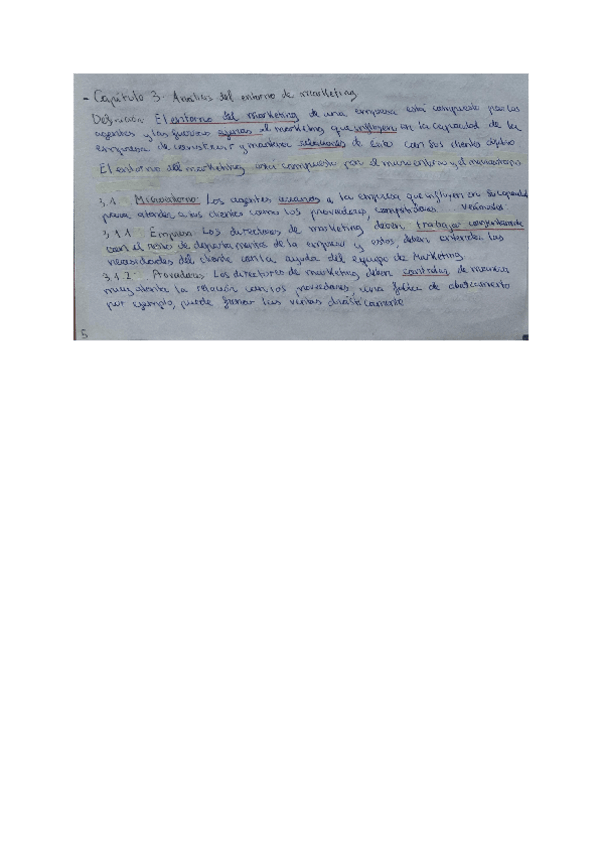 - Capítulo 3. Analisis del entorno de marketing
Definición: El entorno del marketing de una empresa está compuesto por los
agentes y las fuerzas ajenas al marketing que influyen en la capacidad de la
empresa de construir y mantener relaciones de éxito con sus clientes objetivo
El entorno del marketing está compuesto por el microentorno y el macroentorno
3,1 Microentorno: Los agentes cercanos a la empresa que influyen en su capacidad
para atender a sus clientes como los proveedores, competidores. Veámoslos:
3,1.1 Empresa Los directores de marketing deben trabajar conjuntamente
con el resto de departamentos de la empresa y estos, deben entender las
necesidades del cliente con la ayuda del equipo de Marketing.
3.1.2. Proveedores Los directores de marketing deben controlar de manera
muy atenta la relación con los proveedores, una falta de abastecimiento
por ejemplo, puede frenar las ventas drásticamente
5